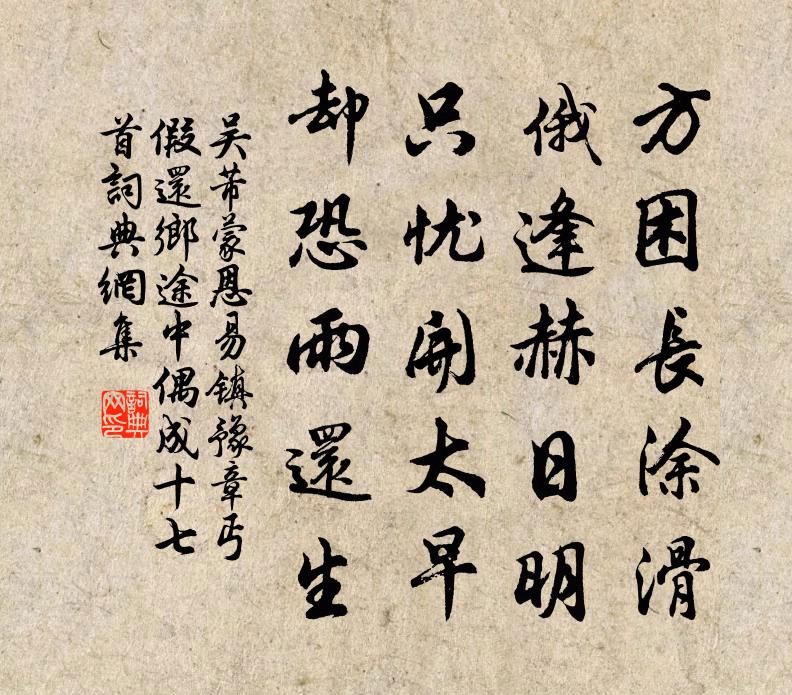 方困長涂滑
俄逢赫日明
只忧開太早
却恐雨還生
吴芾蒙恩易镇豫章丐
假還鄉途中偶成十七
首詞典網集
詞典網印